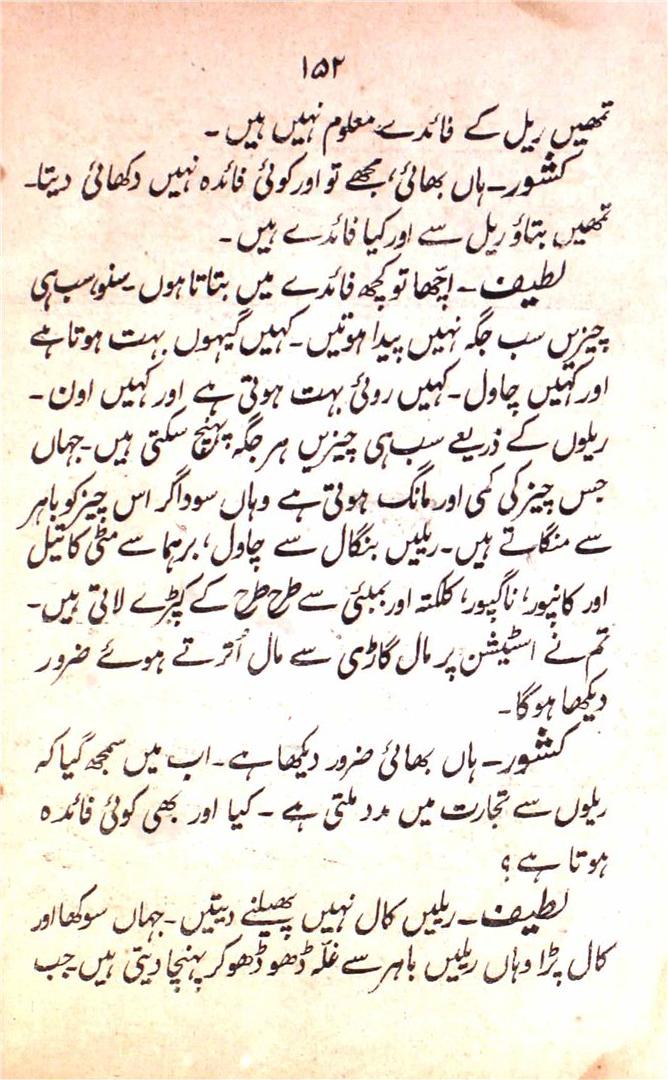 ۱۵۲
تمھیں ریل کے فائدے معلوم نہیں ہیں ۔
کشور۔ ہاں بھائی، مجھے تو اور کوئی فائدہ نہیں دکھائی دیتا۔
تمھیں بتاؤ ریل سے اور کیا فائدے ہیں ۔
لطیف ۔ اچّھا تو کچھ فائدے میں بتاتا ہوں ۔ سنو، سب ہی
چیزیں سب جگہ نہیں پیدا ہوتیں ۔ کہیں گیہوں بہت ہوتا ہے
اور کہیں چاول ۔ کہیں روئی بہت ہوتی ہے اور کہیں اون ۔
ریلوں کے ذریعے سب ہی چیزیں ہر جگہ پہنچ سکتی ہیں ۔ جہاں
جس چیز کی کمی اور مانگ ہوتی ہے وہاں سوداگر اس چیز کو باہر
سے منگاتے ہیں ۔ ریلیں بنگال سے چاول، برہما سے مٹی کا تیل
اور کانپور، ناگپور، کلکتہ اور بمبئی سے طرح طرح کے کپڑے لاتی ہیں ۔
تم نے اسٹیشن پر مال گاڑی سے مال اُترتے ہوئے ضرور
دیکھا ہوگا ۔
کشور۔ ہاں بھائی ضرور دیکھا ہے ۔ اب میں سمجھ گیا کہ
ریلوں سے تجارت میں مدد ملتی ہے ۔ کیا اور بھی کوئی فائدہ
ہوتا ہے ؟
لطیف ۔ ریلیں کال نہیں پھیلنے دیتیں ۔ جہاں سوکھا اور
کال پڑا وہاں ریلیں باہر سے غلّہ ڈھو ڈھو کر پہنچا دیتی ہیں ۔ جب